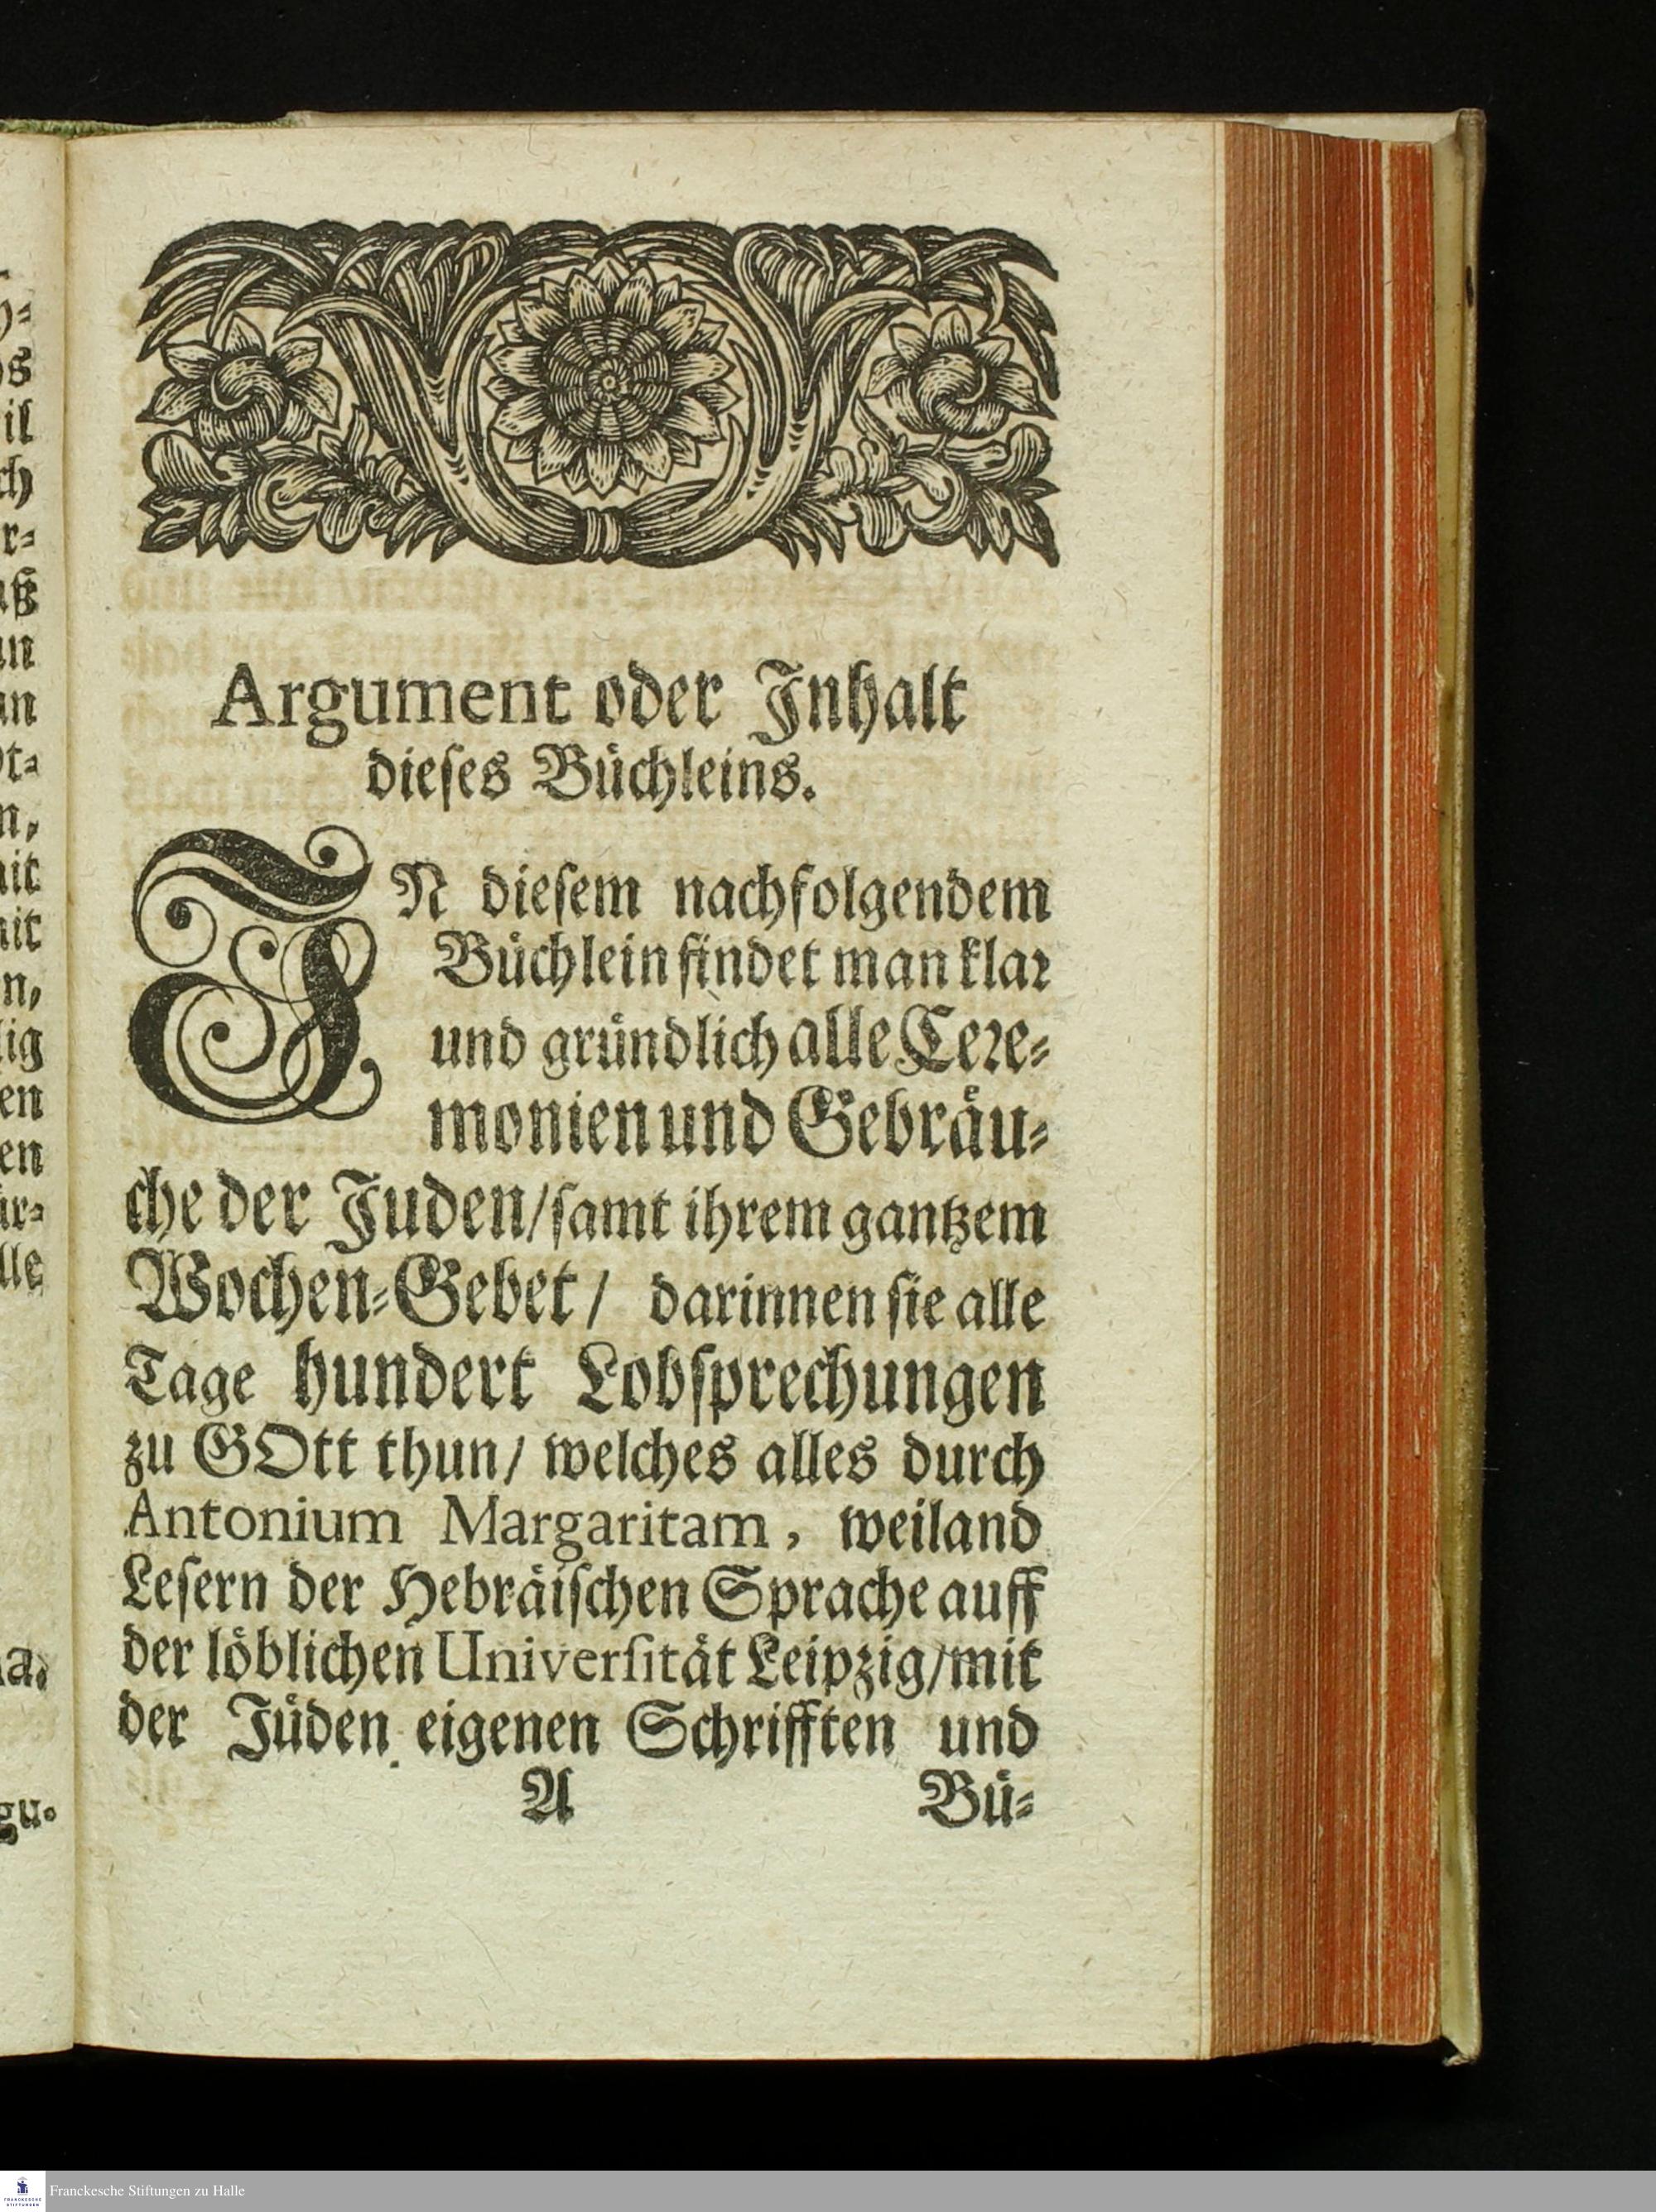 Argument oder Inhalt
dieses Büchleins.
IN diesem nachfolgendem
Büchlein findet man klar
und gründlich alle Cere-
monien und Gebräu-
che der Juden/samt ihrem gantzem
Wochen-Gebet/ darinnen sie alle
Tage hundert Lobsprechungen
zu GOtt thun/ welches alles durch
Antonium Margaritam, weiland
Lesern der Hebräischen Sprache auff
der löblichen Universität Leipzig/mit
der Jüden eigenen Schrifften und
A Bü-
Franckesche Stiftungen zu Halle